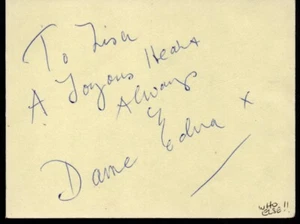 To Lisa
A Joyous Heart
Always
Dame Edna x
WHO
ELSE!!